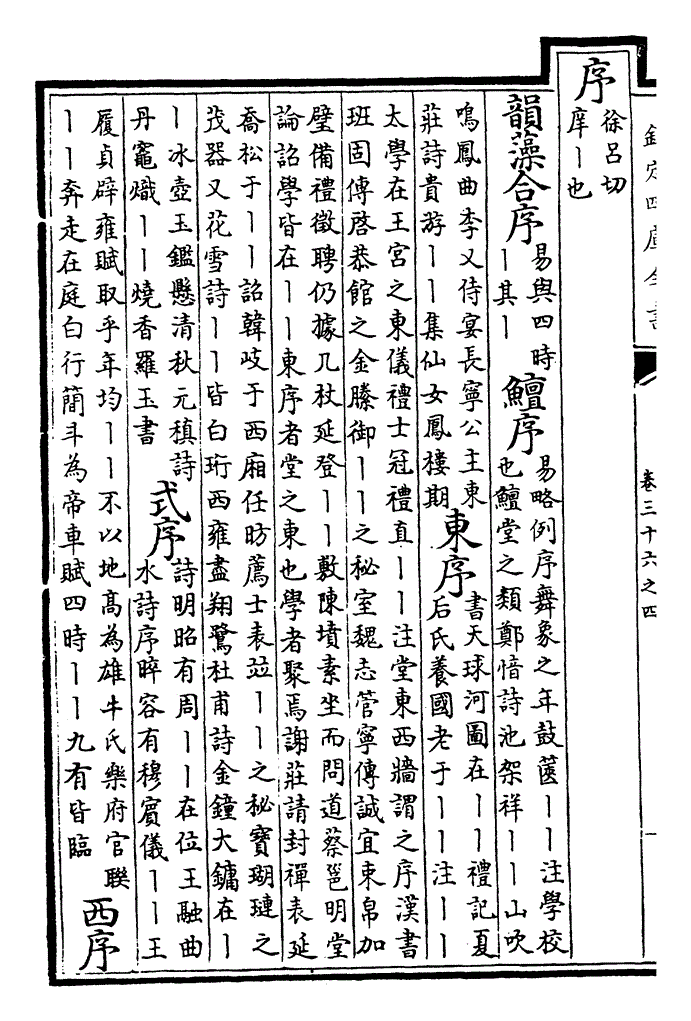 欽定四庫全書
卷三十六之四
一
序
徐呂切
庠丨也
韻藻合序
易與四時
丨其丨
鱣序
易略例序舞象之年鼓篋丨丨注學校
也鱣堂之類鄭愔詩池架祥丨丨山吹
鳴鳳曲李乂侍宴長寧公主東
莊詩貴游丨丨集仙女鳳樓期
東序
書天球河圖在丨丨禮記夏
后氏養國老于丨丨注丨丨
太學在王宮之東儀禮士冠禮直丨丨注堂東西牆謂之序漢書
班固傳啓恭館之金縢御丨丨之秘室魏志管寧傳誠宜東帛加
璧備禮徵聘仍據几杖延登丨丨敷陳墳素坐而問道蔡邕明堂
論詔學皆在丨丨東序者堂之東也學者聚焉謝莊請封禪表延
喬松于丨丨詔韓岐于西廂任昉薦士表竝丨丨之秘寶瑚璉之
茂器又花雪詩丨丨皆白珩西雍盡翔鷺杜甫詩金鐘大鏞在丨
丨冰壺玉鑑懸清秋元稹詩
丹竈熾丨丨燒香羅玉書
式序
詩明昭有周丨丨在位王融曲
水詩序晬容有穆賓儀丨丨王
履貞辟雍賦取乎年均丨丨不以地高為雄牛氏樂府官聯
丨丨奔走在庭白行簡斗為帝車賦四時丨丨九有皆臨
西序